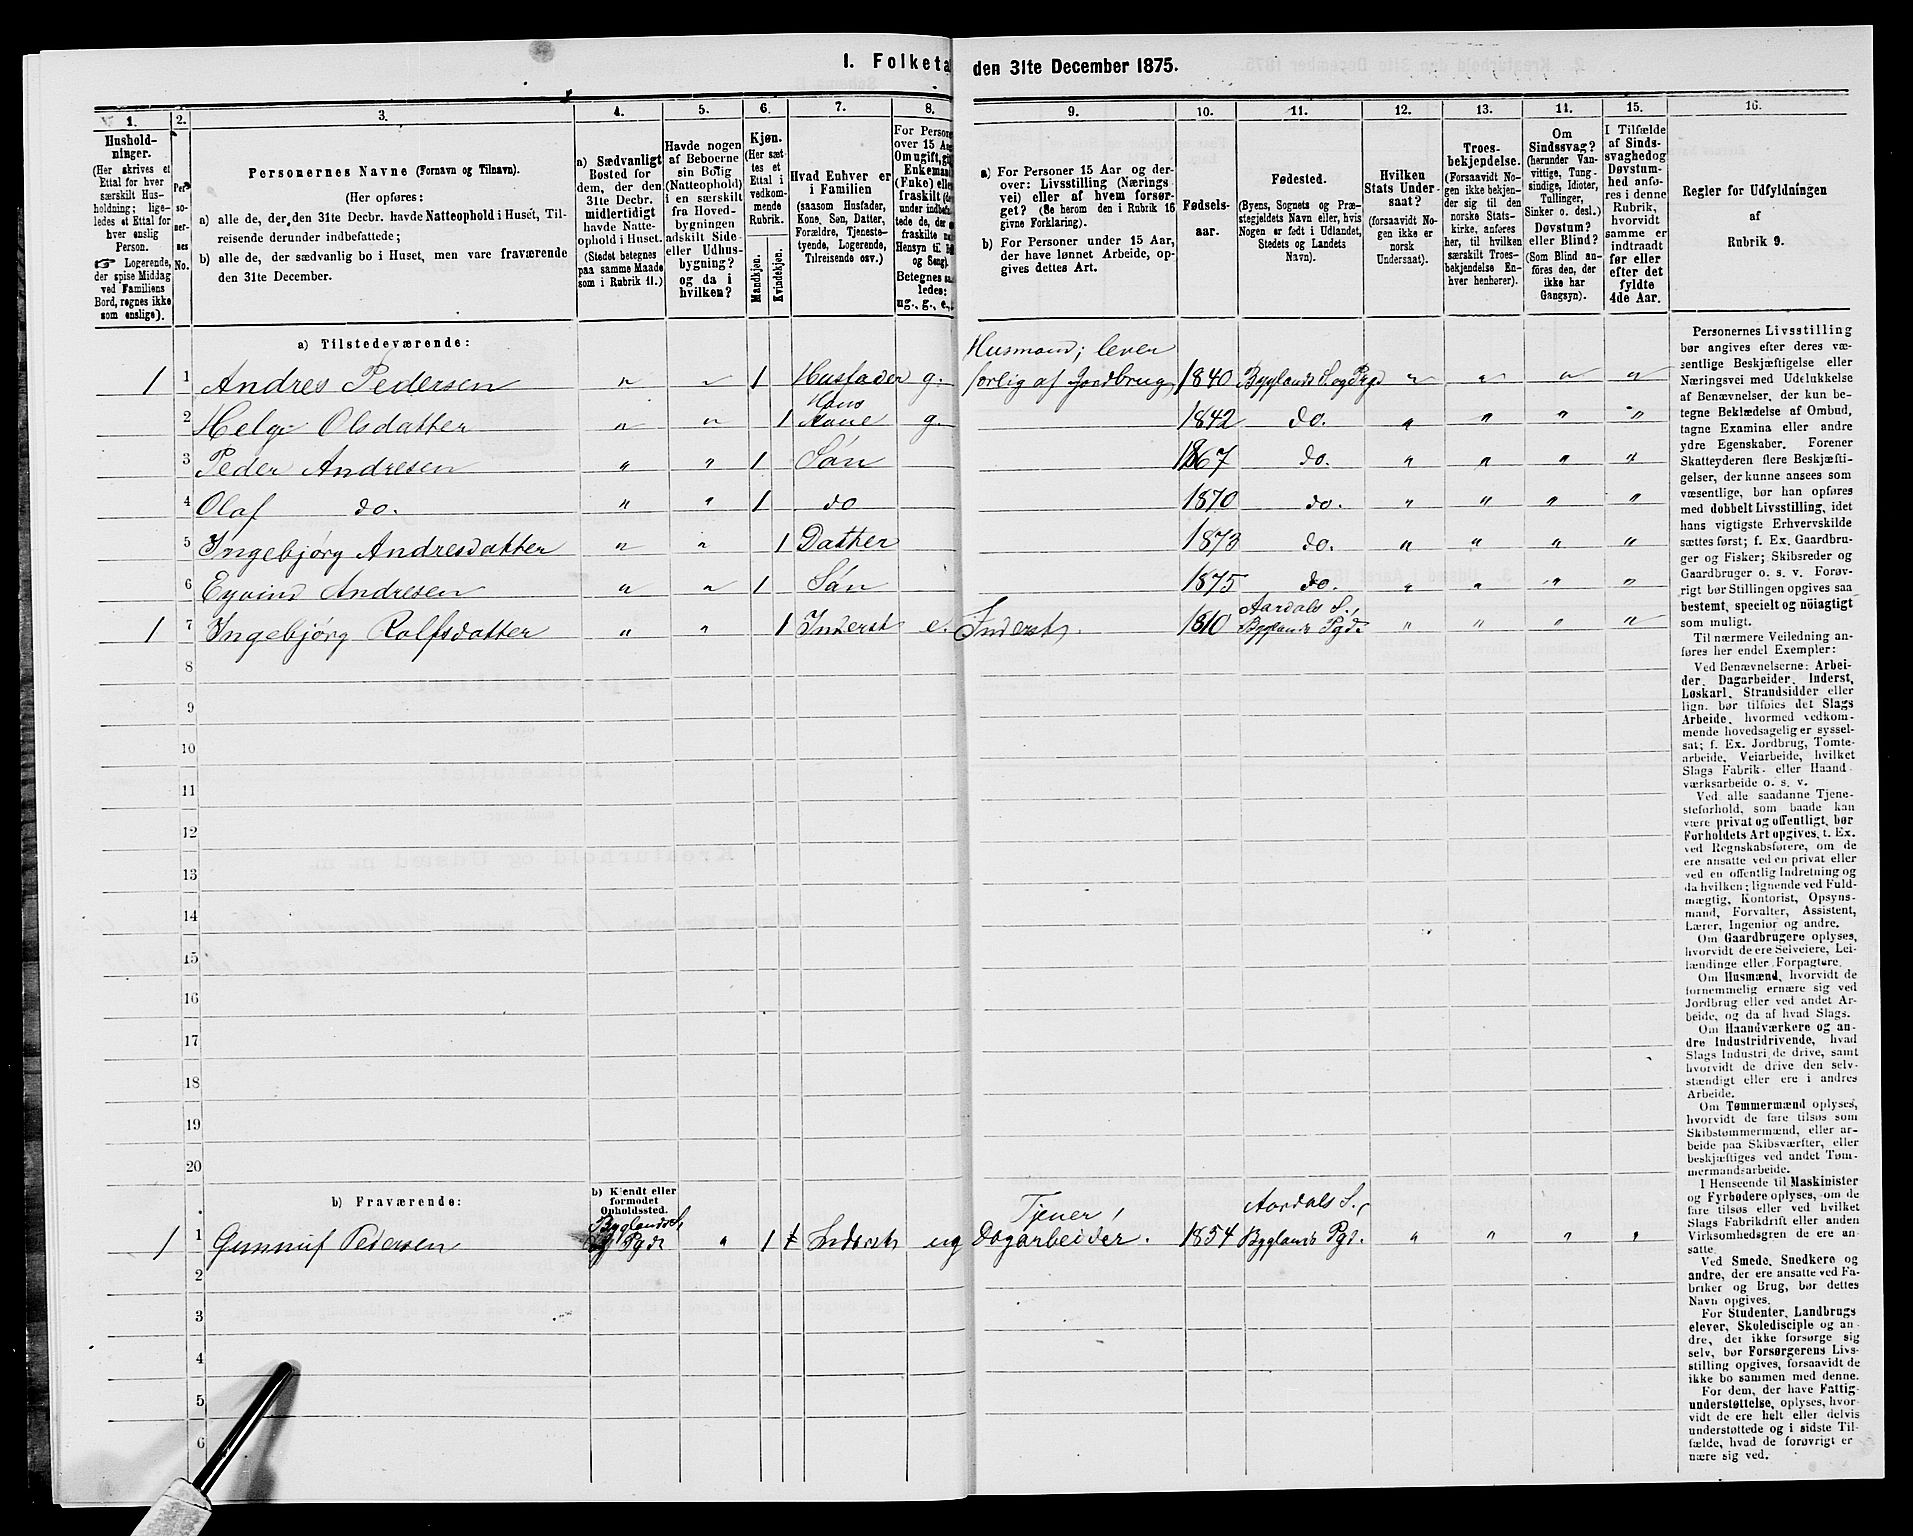 I. Folketa den 31te December 1875.
1. 2. 3. 4. 5. 6. 7. 8. 9. 10. 11. 12. 13. 14. 15. 16.
Hushold-
ninger.
(Her skrives et
Ettal for hver
særskilt Hus-
holdning; lige-
ledes et Ettal for
hver enslig
Person.
☞ Logerende,
der spise Middag
ved Familiens
Bord, regnes ikke
som enslige).
Per-
so-
ner-
nes
No.
Personernes Navne (Fornavn og Tilnavn).
(Her opføres:
a) alle de, der den 31te Decbr. havde Natteophold i Huset, Til-
reisende derunder indbefattede;
b) alle de, der sædvanlig bo i Huset, men vare fraværende
den 31te December.
a) Sædvanligt
Bosted for
dem, der den
31te Decbr.
midlertidigt
havde Natte-
ophold i Huset.
(Stedet betegnes
paa samme Maade
som i Rubrik 11.)
Havde nogen
af Beboerne
sin Bolig
(Natteophold)
i en særskilt
fra Hoved-
bygningen
adskilt Side-
eller Udhus-
bygning?
og da i
hvilken?
Kjøn.
(Her sæt-
tes et
Ettal i
vedkom-
mende
Rubrik.
Mandkjøn.
Kvindekjøn.
Hvad Enhver er
i Familien
(saasom Husfader,
Kone, Søn, Datter,
Forældre, Tjeneste-
tyende, Logerende,
Tilreisende osv.)
For Persone
over 15 Aar
Om ugift, gi
Enkemand
(Enke) elle
fraskilt (de
under indbefat-
tede de, der e
fraskilte me
Hensyn til B
og Seng).
Betegnes saa
ledes:
ug., g., e.,
a) For Personer 15 Aar og der-
over: Livsstilling (Nærings-
vei) eller af hvem forsør-
get? (Se herom den i Rubrik 16
givne Forklaring).
b) For Personer under 15 Aar,
der have lønnet Arbeide, op-
gives dettes Art.
Fødsels-
aar.
Fødested.
(Byens, Sognets og Præ-
stegjeldets Navn eller, hvis
Nogen er født i Udlandet,
Stedets og Landets
Navn).
Hvilken
Stats Under-
saat?
(forsaavidt No-
gen ikke er
norsk
Undersaat).
Troes-
bekjendelse.
(Forsaavidt No-
gen ikke bekjen-
der sig til den
norske Stats-
kirke, anføres
her, til hvilken
særskilt Troes-
bekjendelse En-
hver henhører).
Om
Sindssvag?
(herunder Van-
vittige, Tung-
sindige, Idioter,
Tullinger,
Sinker o. desl.)
Døvstum?
eller Blind?
(Som Blind an-
føres den, der
ikke har
Gangsyn).
I Tilfælde
af Sinds-
svaghedog
Døvstum-
hed anfø-
res i denne
Rubrik,
hvorvidt
samme er
indtraadt
før eller
efter det
fyldte
4de Aar.
Regler for Udfyldningen
af
Rubrik 9.
a) Tilstedeværende:
Husmand; lever
1 1 Andres Pedersen „ „ 1 Husfader g. forlig af Jordbrug 1840 Byglands S. og Pgd „ „ „ „
2 Helge Olsdatter „ „ 1 Hans Kone g. 1842 do. „ „ „ „
3 Peder Andresen „ „ 1 Søn 1867 do. „ „ „ „
4 Olaf do. „ „ 1 do 1870 do. „ „ „ „
5 Ingebjørg Andresdatter „ „ 1 Datter 1873 do. „ „ „ „
6 Eyvind Andresen „ „ 1 Søn 1875 do. „ „ „ „
1 7 Ingebjørg Rolfsdatter „ „ 1 Inderst e. Inderst. 1810 Aardals S., Byglands Pgd. „ „ „ „
8
9
10
11
12
13
14
15
16
17
18
19
20
b) Fraværende:
b) Kjendt eller
formodet
Opholdssted.
1 1 Gunnuf Pedersen Byglands S. og Pgd. „ 1 Inderst ug Tjener, Dagarbeider. 1854 Aardals S., Byglands Pgd. „ „ „ „
2
3
4
5
6
Personernes Livsstilling
bør angives efter deres væ-
sentlige Beskjæftigelse eller
Næringsvei med Udelukkelse
af Benævnelser, der kun be-
tegne Beklædelse af Ombud,
tagne Examina eller andre
ydre Egenskaber. Forener
Skatteyderen flere Beskjæfti-
gelser, der kunne ansees som
væsentlige, bør han opføres
med dobbelt Livsstilling, idet
hans vigtigste Erhvervskilde
sættes først; f. Ex. Gaardbru-
ger og Fisker; Skibsreder og
Gaardbruger o. s. v. Forøv-
rigt bør Stillingen opgives saa
bestemt, specielt og nøiagtigt
som muligt.
Til nærmere Veiledning an-
føres her endel Exempler:
Ved Benævnelserne: Arbei-
der, Dagarbeider, Inderst,
Løskarl, Strandsidder eller
lign. bør tilføies det Slags
Arbeide, hvormed vedkom-
mende hovedsagelig er syssel-
sat; f. Ex. Jordbrug, Tomte-
arbeide, Veiarbeide, hvilket
Slags Fabrik- eller Haand-
værksarbeide o. s. v.
Ved alle saadanne Tjene-
steforhold, som baade kan
være privat og offentligt, bør
Forholdets Art opgives, t. Ex.
ved Regnskabsførere, om de
ere ansatte ved en privat eller
ved en offentlig Indretning og
da hvilken; lignende ved Fuld-
mægtig, Kontorist, Opsyns-
mand, Forvalter, Assistent,
Lærer, Ingeniør og andre.
Om Gaardbrugere oplyses,
hvorvidt de ere Selveiere, Lei-
lændinge eller Forpagtere.
Om Husmænd, hvorvidt de
fornemmelig ernære sig ved
Jordbrug eller ved andet Ar-
beide, og da af hvad Slags.
Om Haandværkere og an-
dre Industridrivende, hvad
Slags Industri de drive, samt
hvorvidt de drive den selv-
stændigt eller ere i andres
Arbeide.
Om Tømmermænd oplyses,
hvorvidt de fare tilsøs som
Skibstømmermænd, eller ar-
beide paa Skibsværfter, eller
beskjæftiges ved andet Tøm-
mermandsarbeide.
I Henseende til Maskinister
og Fyrbødere oplyses, om de
fare tilsøs eller ved hvilket
Slags Fabrikdrift eller anden
Virksomhedsgren de ere an-
satte.
Ved Smede, Snedkere og
andre, der ere ansatte ved Fa-
briker og Brug, bør dettes
Navn opgives.
For Studenter, Landbrugs-
elever, Skoledisciple og an-
dre, der ikke forsørge sig
selv, bør Forsørgerens Livs-
stilling opgives, forsaavidt de
ikke bo sammen med denne.
For dem, der have Fattig-
understøttelse, oplyses, hvor-
vidt de ere helt eller delvis
understøttede og i sidste Til-
fælde, hvad de forøvrigt er-
nære sig ved.